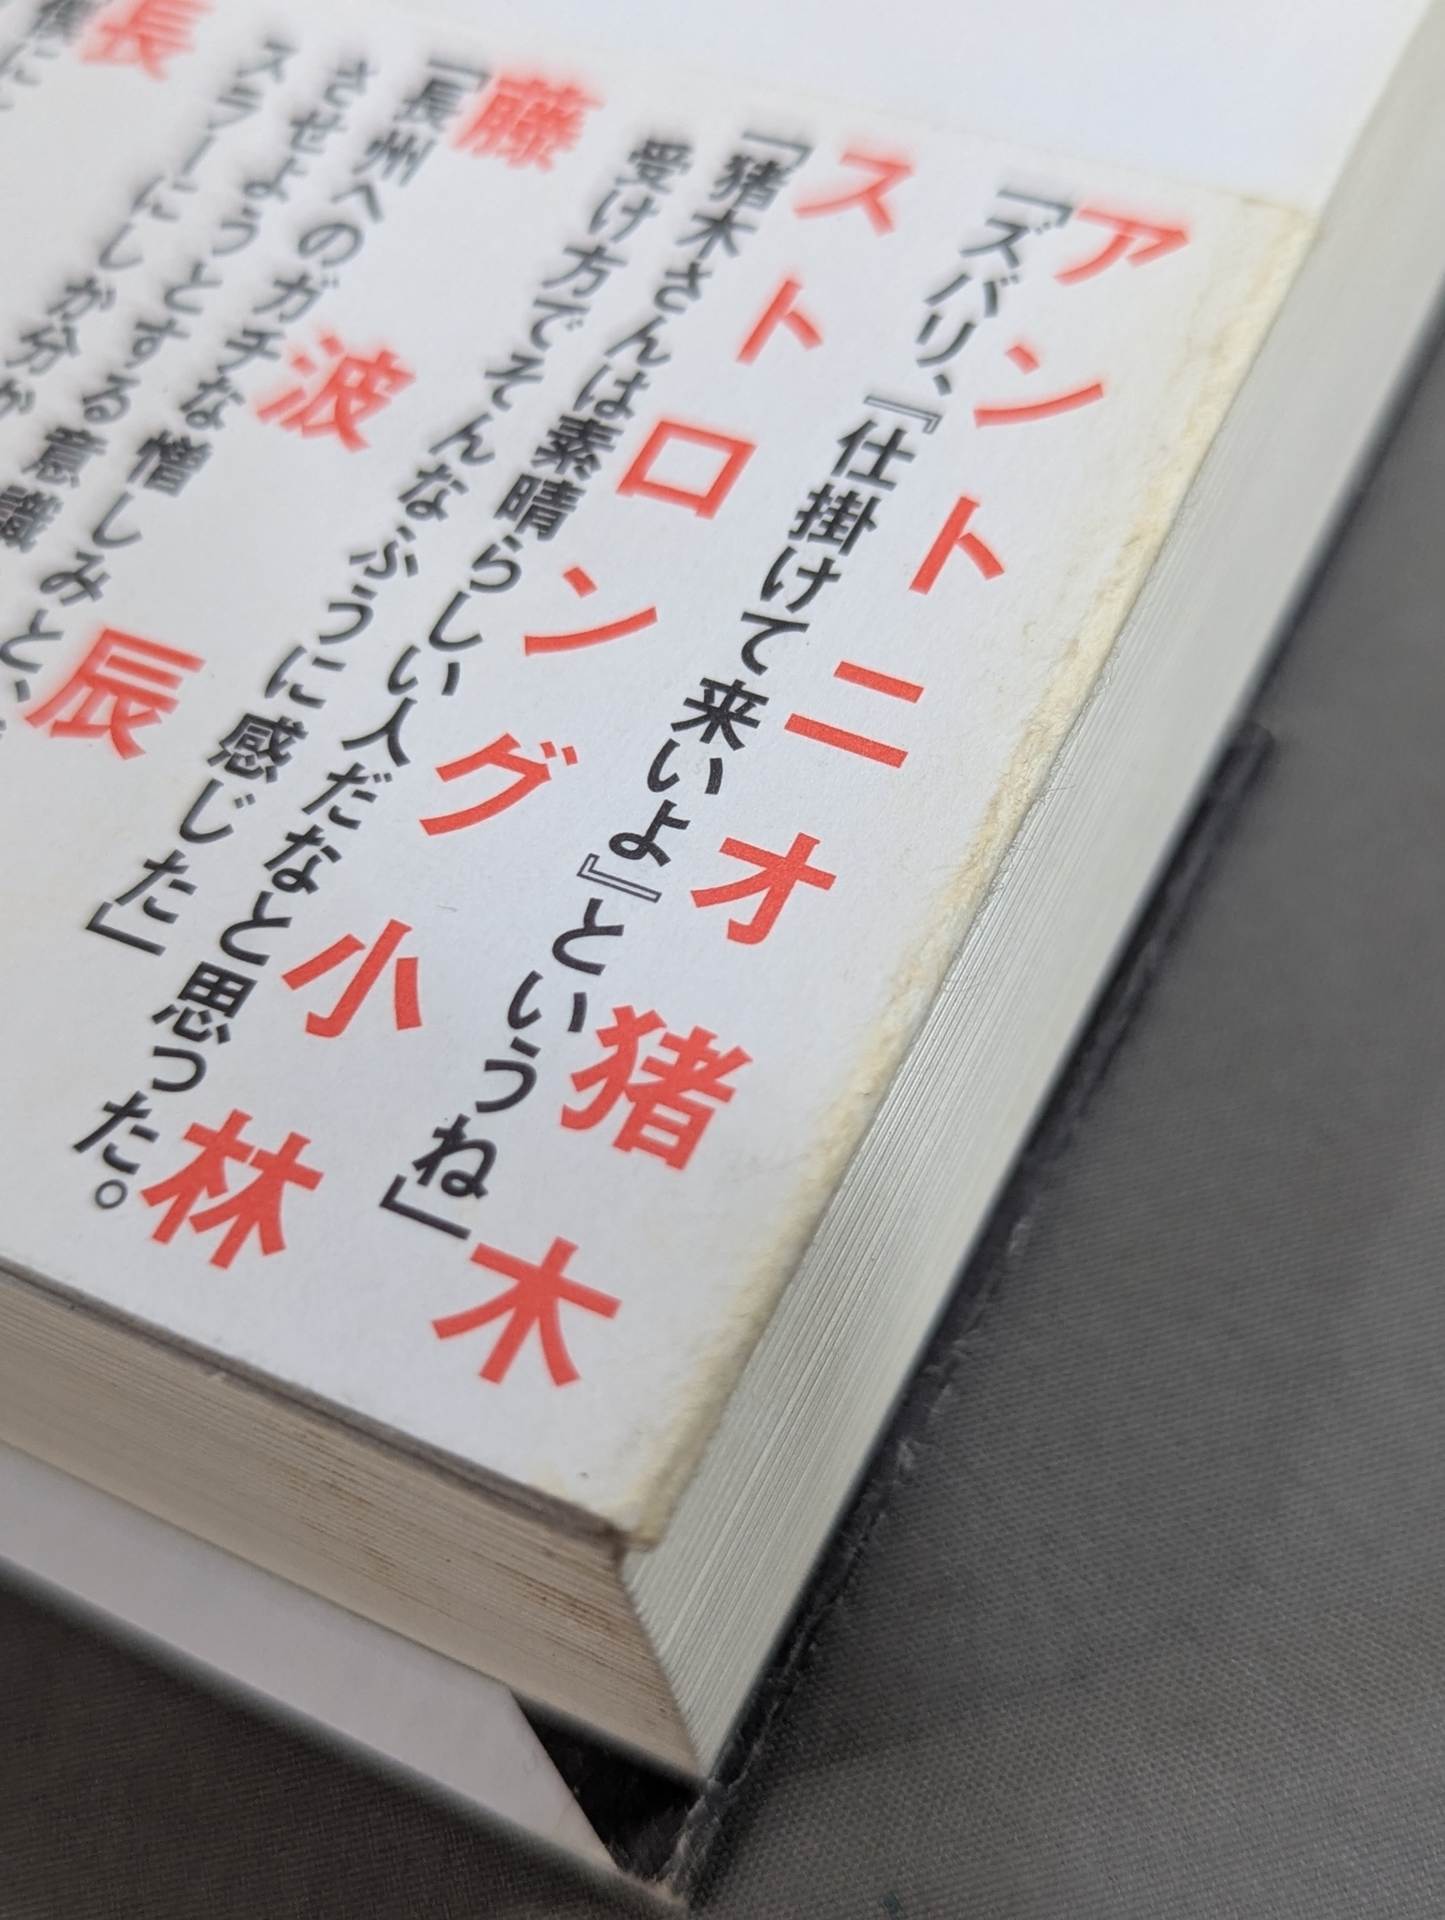 アントニオ猪木
「ズバリ、『仕掛けて来いよ』というね」
ストロング小林
「猪木さんは素晴らしい人だなと思った。
受け方でそんなふうに感じた」
藤波辰
「長州へのガチな憎しみと、
させようとする意識
スラーにしか分か
長